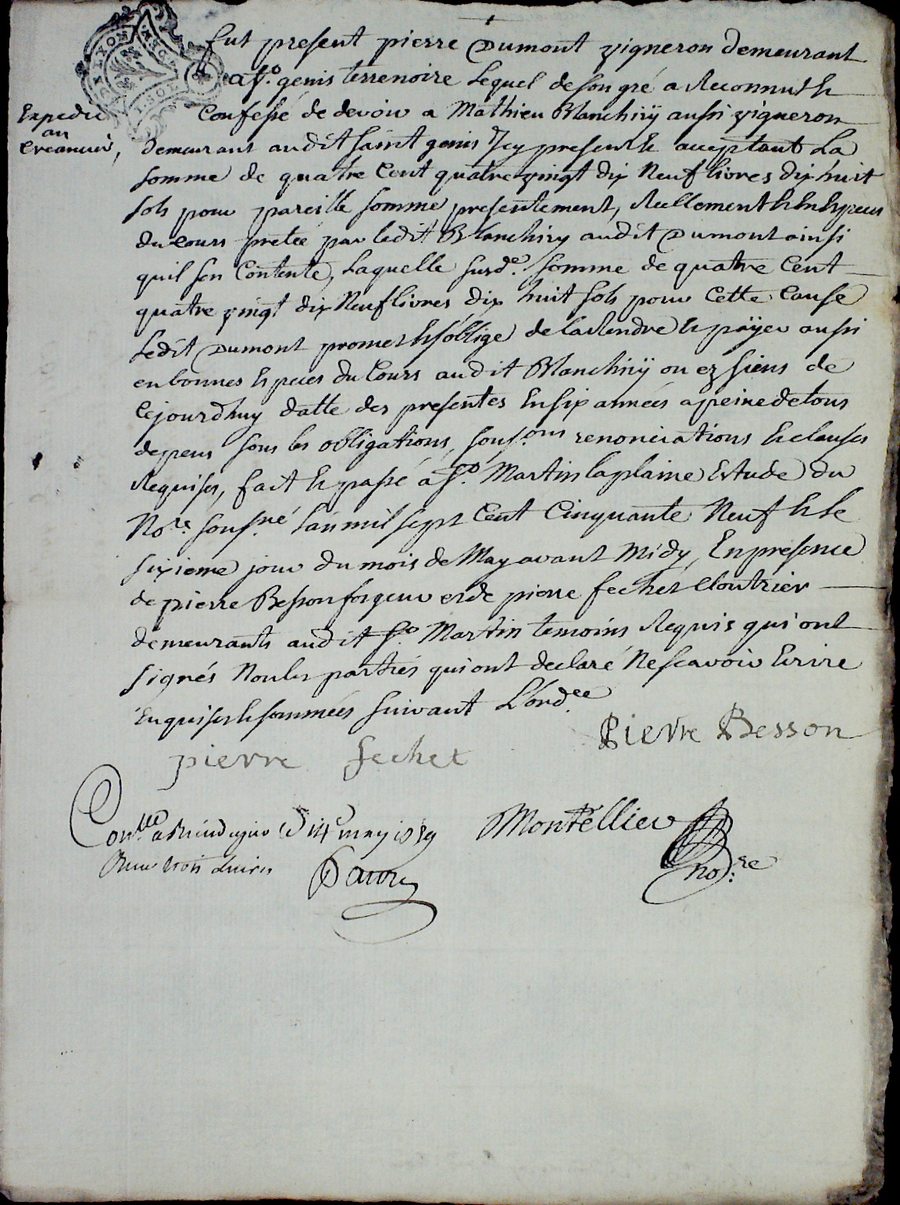 fut present pierre Dumont vigneron demeurant
a St. genis terrenoire Lequel de son gré a Reconnut &
Confessé de devoir a Mathieu Blanchiry aussi vigneron
Expedié
au
Creancier,
demeurant audit saint genis Jcy present & acceptant La
somme de quatre Cent quatre vingt dix Neuf livres dix huit
sols pour pareille somme presentement, Reellement & En Especes
du cours pretée par ledit Blanchiry audit Dumont ainsi
quil s'en Contente, Laquelle susde. somme de quatre Cent
quatre vingt dix Neuf livres dix huit sols pour Cette Cause
Ledit Dumont promet & s'oblige de la Rendre & païyer aussi
en bonnes Especes du Cours audit Blanchiry ou ez siens de
Cejourd'huy datte des presentes En six années a peine de tous
depens sous les obligations, sousons. renonciations & clauses
Requises, fait & passé a St. Martin la plaine Estude du
Nore. sousné. L'an mil sept Cent Cinquante Neuf & le
sixieme jour du mois de May avant Midy, En presence
de pierre Besson forgeur et de pierre fechet Cloutrier
demeurants audit St Martin temoins Requis qui ont
signés Non les partiés qui ont declaré Ne scavoir Ecrire
Enquises & sommées suivant L'ordee.
Pierre Besson
pierre fechet
Conllé a Rivedegier le 14e may 1759
Montellier
nore.